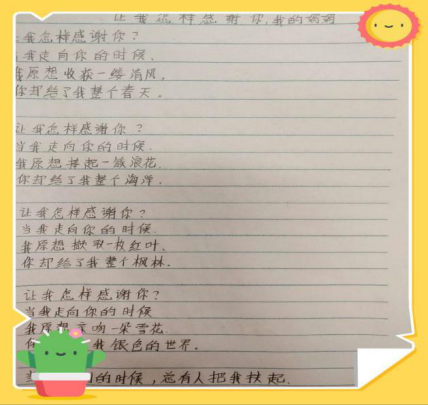 让我怎样感谢你,我的
让我怎样感谢你?
当我走向你的时候,
我原想收获一缕清风,
你却给了我整个春天。
让我怎样感谢你?
当我走向你的时候.
我原想捧起一簇浪花
你却给了我整个海洋.
让我怎样感谢你?
当我走向你的时候.
我原想撷取一枚红叶.
你却给了我整个枫林.
让我怎样感谢你?
当我走向你的时候
我原想亲吻一朵雪花
你 我银色的世界.
的时候,总有人把我扶起.